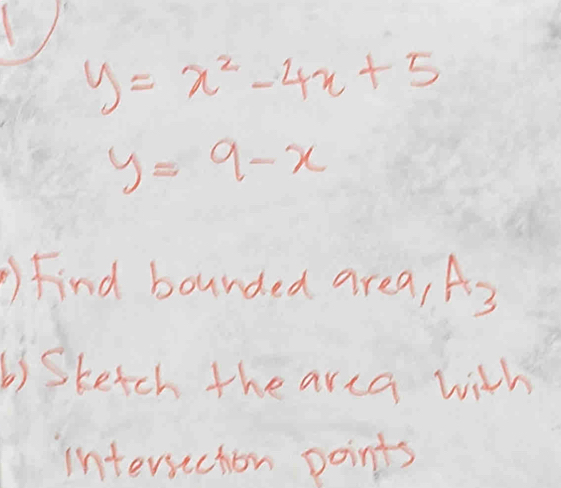 1)
y = x² - 4x + 5
y = 9 - x
a) Find bounded area, A₃
b) Sketch the area with
intersection points